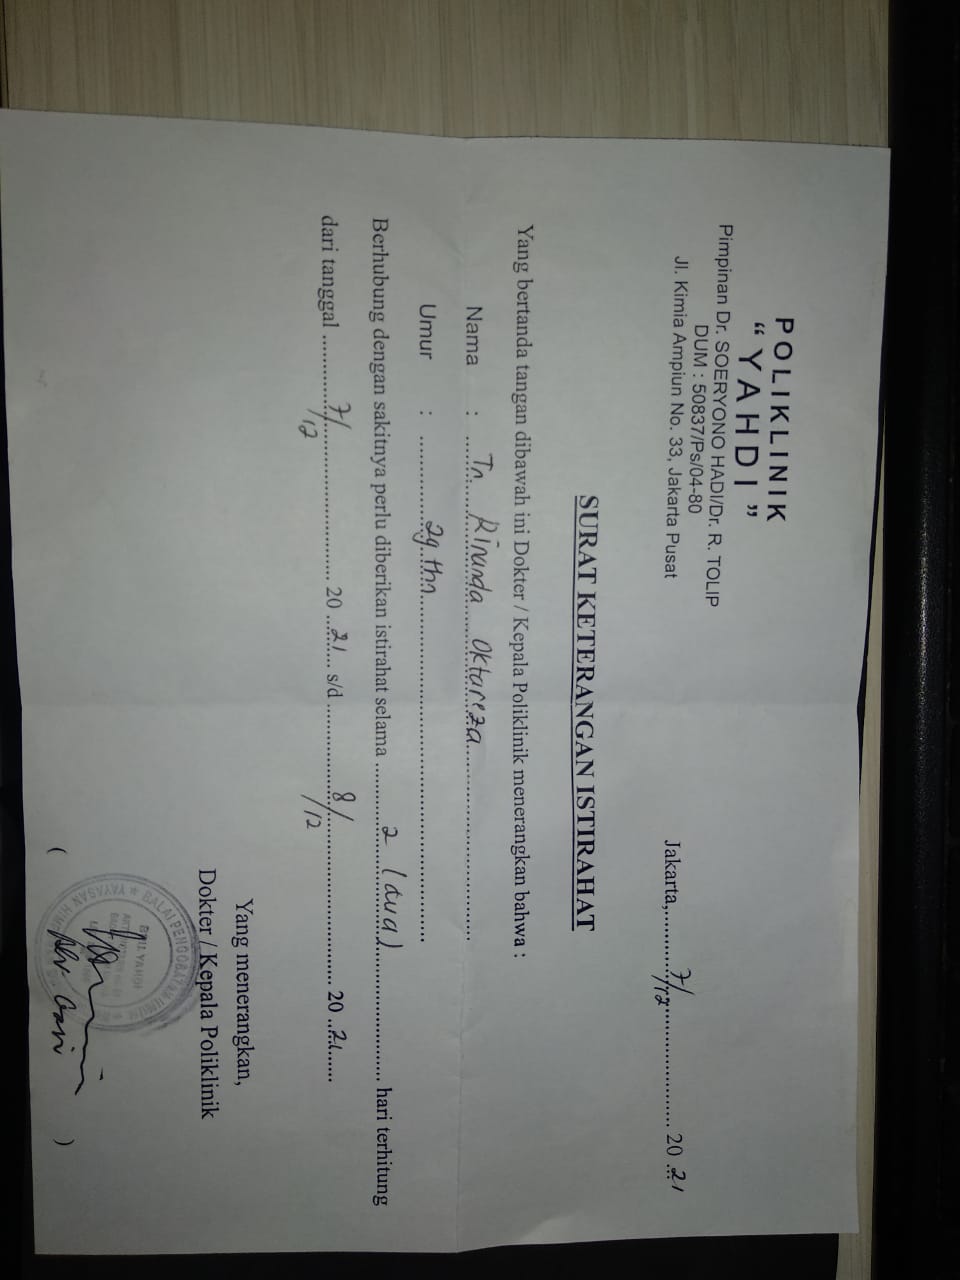 POLIKLINIK
“YAHDI”
Pimpinan Dr. SOERYONO HADI/Dr. R. TOLIP
DUM : 50837/Ps/04-80
Jl. Kimia Ampiun No. 33, Jakarta Pusat
Jakarta, 7/12 20 21
SURAT KETERANGAN ISTIRAHAT
Yang bertanda tangan dibawah ini Dokter / Kepala Poliklinik menerangkan bahwa :
Nama : Tn. Rinanda Oktareza
Umur : 29 thn
Berhubung dengan sakitnya perlu diberikan istirahat selama 2 (dua) hari terhitung
dari tanggal 7/12 20 21 s/d 8/12 20 21
Yang menerangkan,
Dokter / Kepala Poliklinik
BALAI PENGOBATAN UMUM
YAYASAN
YAHDI
( )